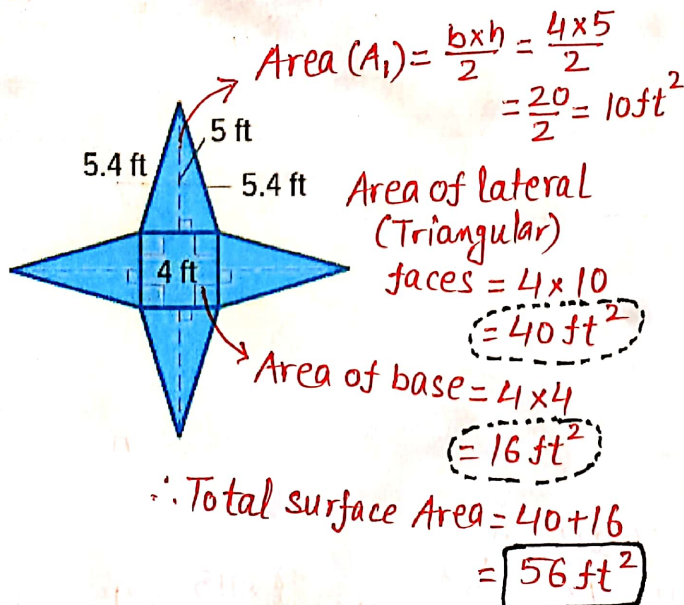 Area (A₁) = b×h/2 = 4×5/2
= 20/2 = 10ft²
5 ft
5.4 ft
5.4 ft
4 ft
Area of lateral
(Triangular)
faces = 4×10
= 40 ft²
Area of base = 4×4
= 16 ft²
∴ Total surface Area = 40+16
= 56 ft²